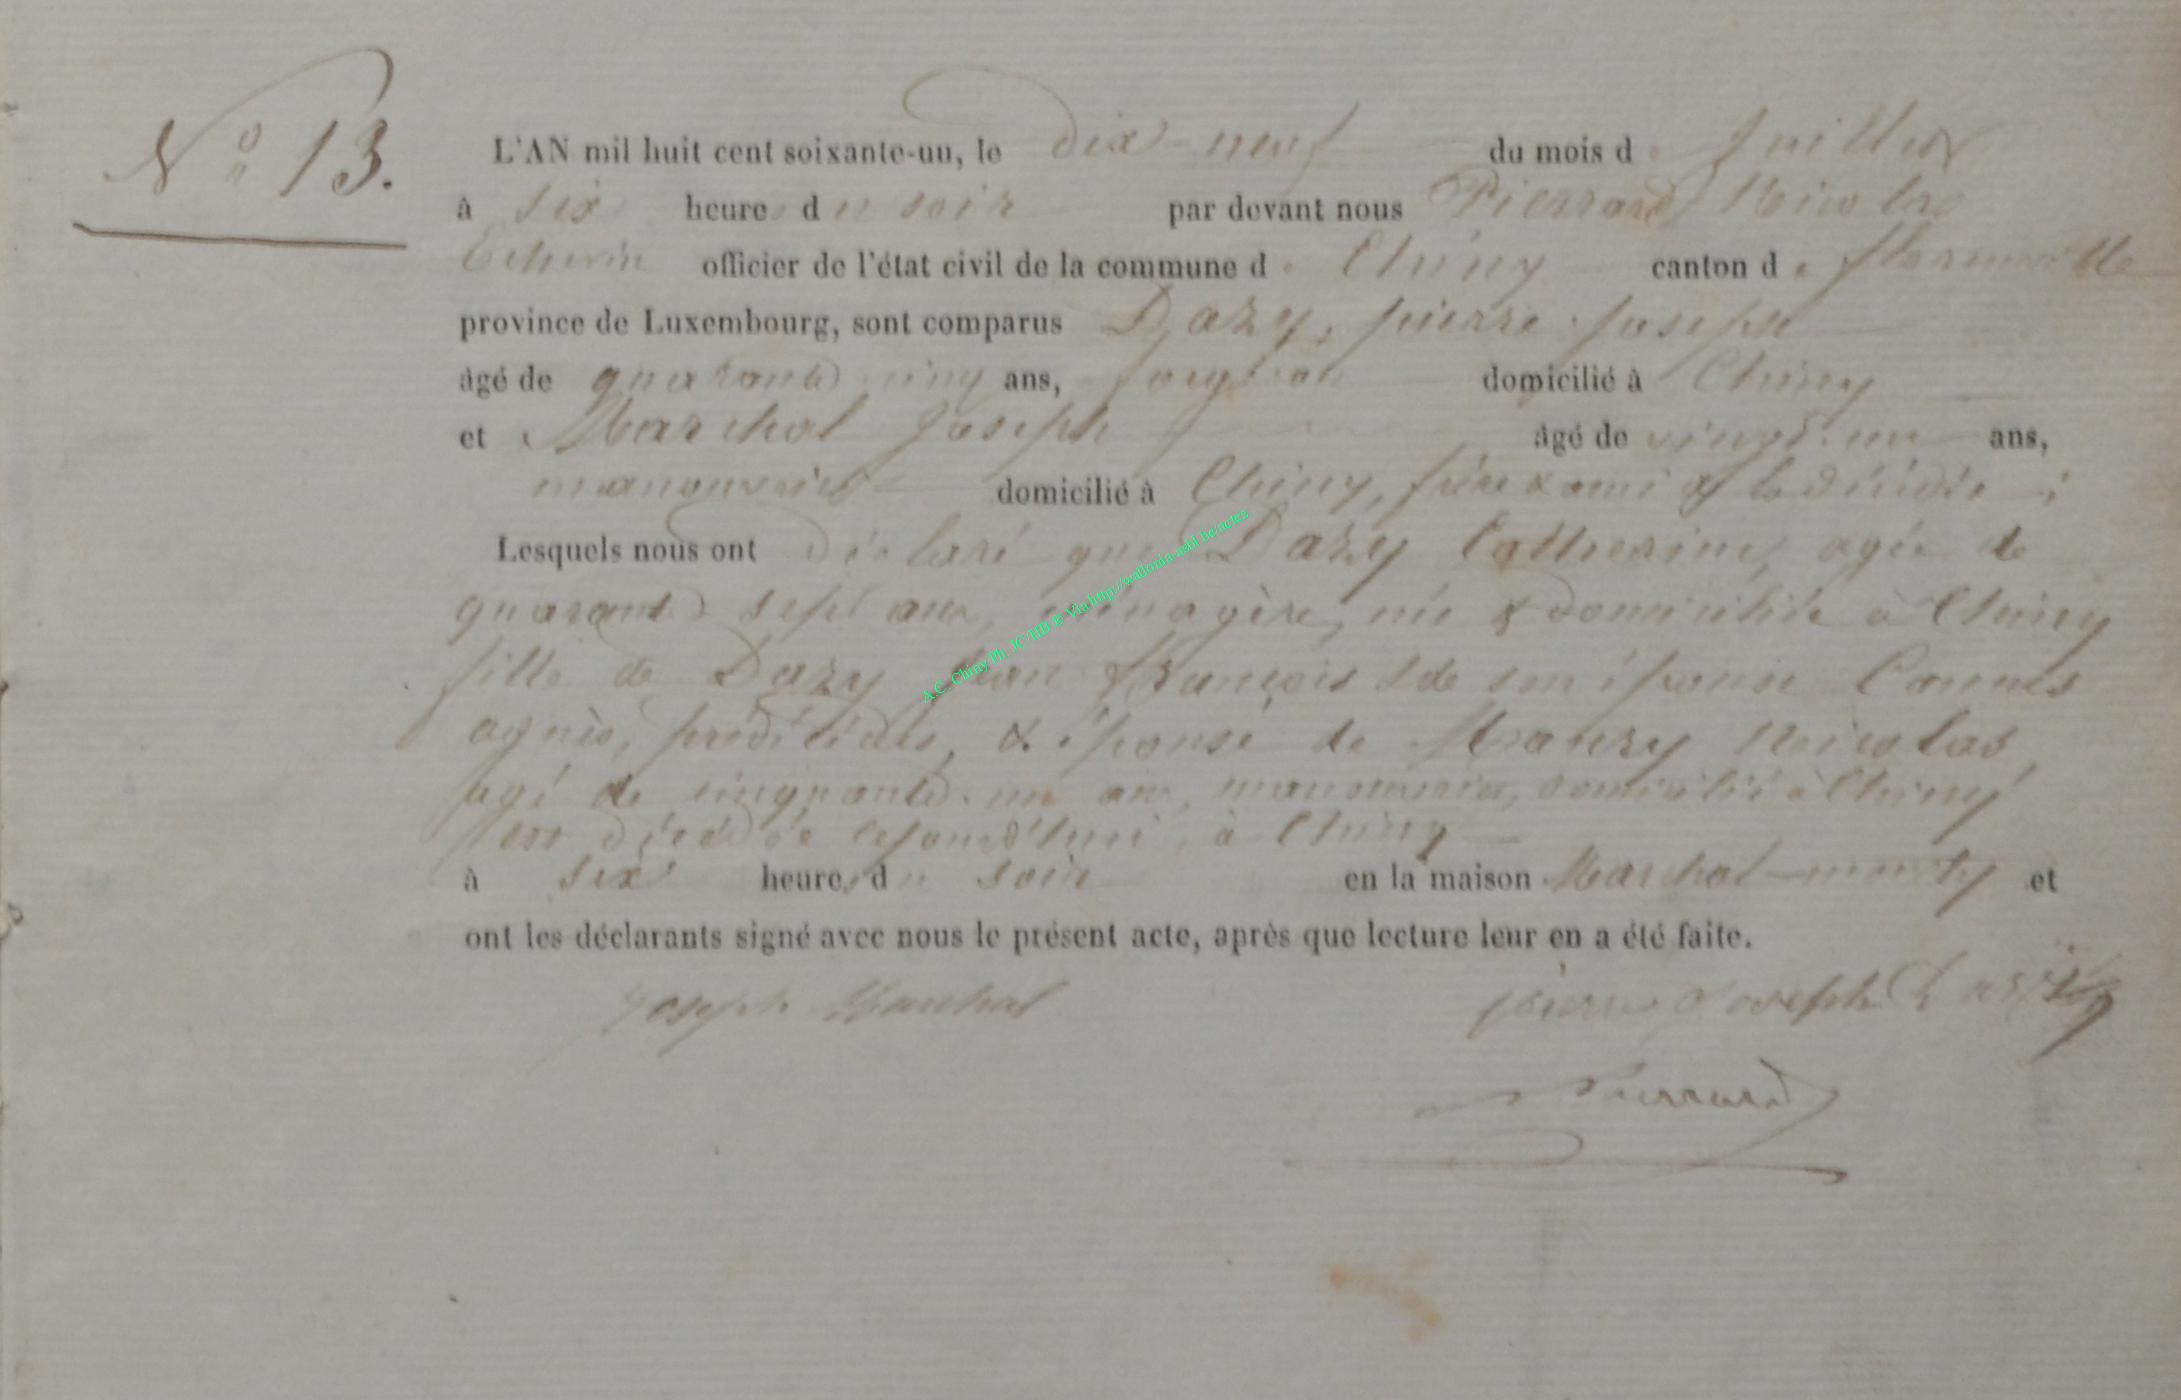 N° 13.
L'AN mil huit cent soixante-un, le dix-neuf du mois de Juillet
à six heures du soir par devant nous Pierrard Nicolas
Echevin officier de l'état civil de la commune de Chiny canton de florenville
province de Luxembourg, sont comparus Dazy, pierre joseph
âgé de quarante cinq ans, forgeron domicilié à Chiny
et Marchal Joseph âgé de vingt-un ans,
manouvrier domicilié à Chiny, frère & ami de la décédée ;
Lesquels nous ont déclaré que Dazy Catherine, agée de
quarante sept ans, ménagère, née & domiciliée à Chiny
fille de Dazy jean françois & de son épouse
agnès, prédécédés, & épouse de Nicolas,
agé de cinquante-un ans, manouvrier, domicilié à Chiny
est décédée cejourd'hui, à Chiny
à six heures du soir en la maison Marchal et
ont les déclarants signé avec nous le présent acte, après que lecture leur en a été faite.
Joseph Marchal pierre Joseph
Pierrard
A.C. Chiny Ph. JC HB © Via http://wallonia-asbl.be/actes